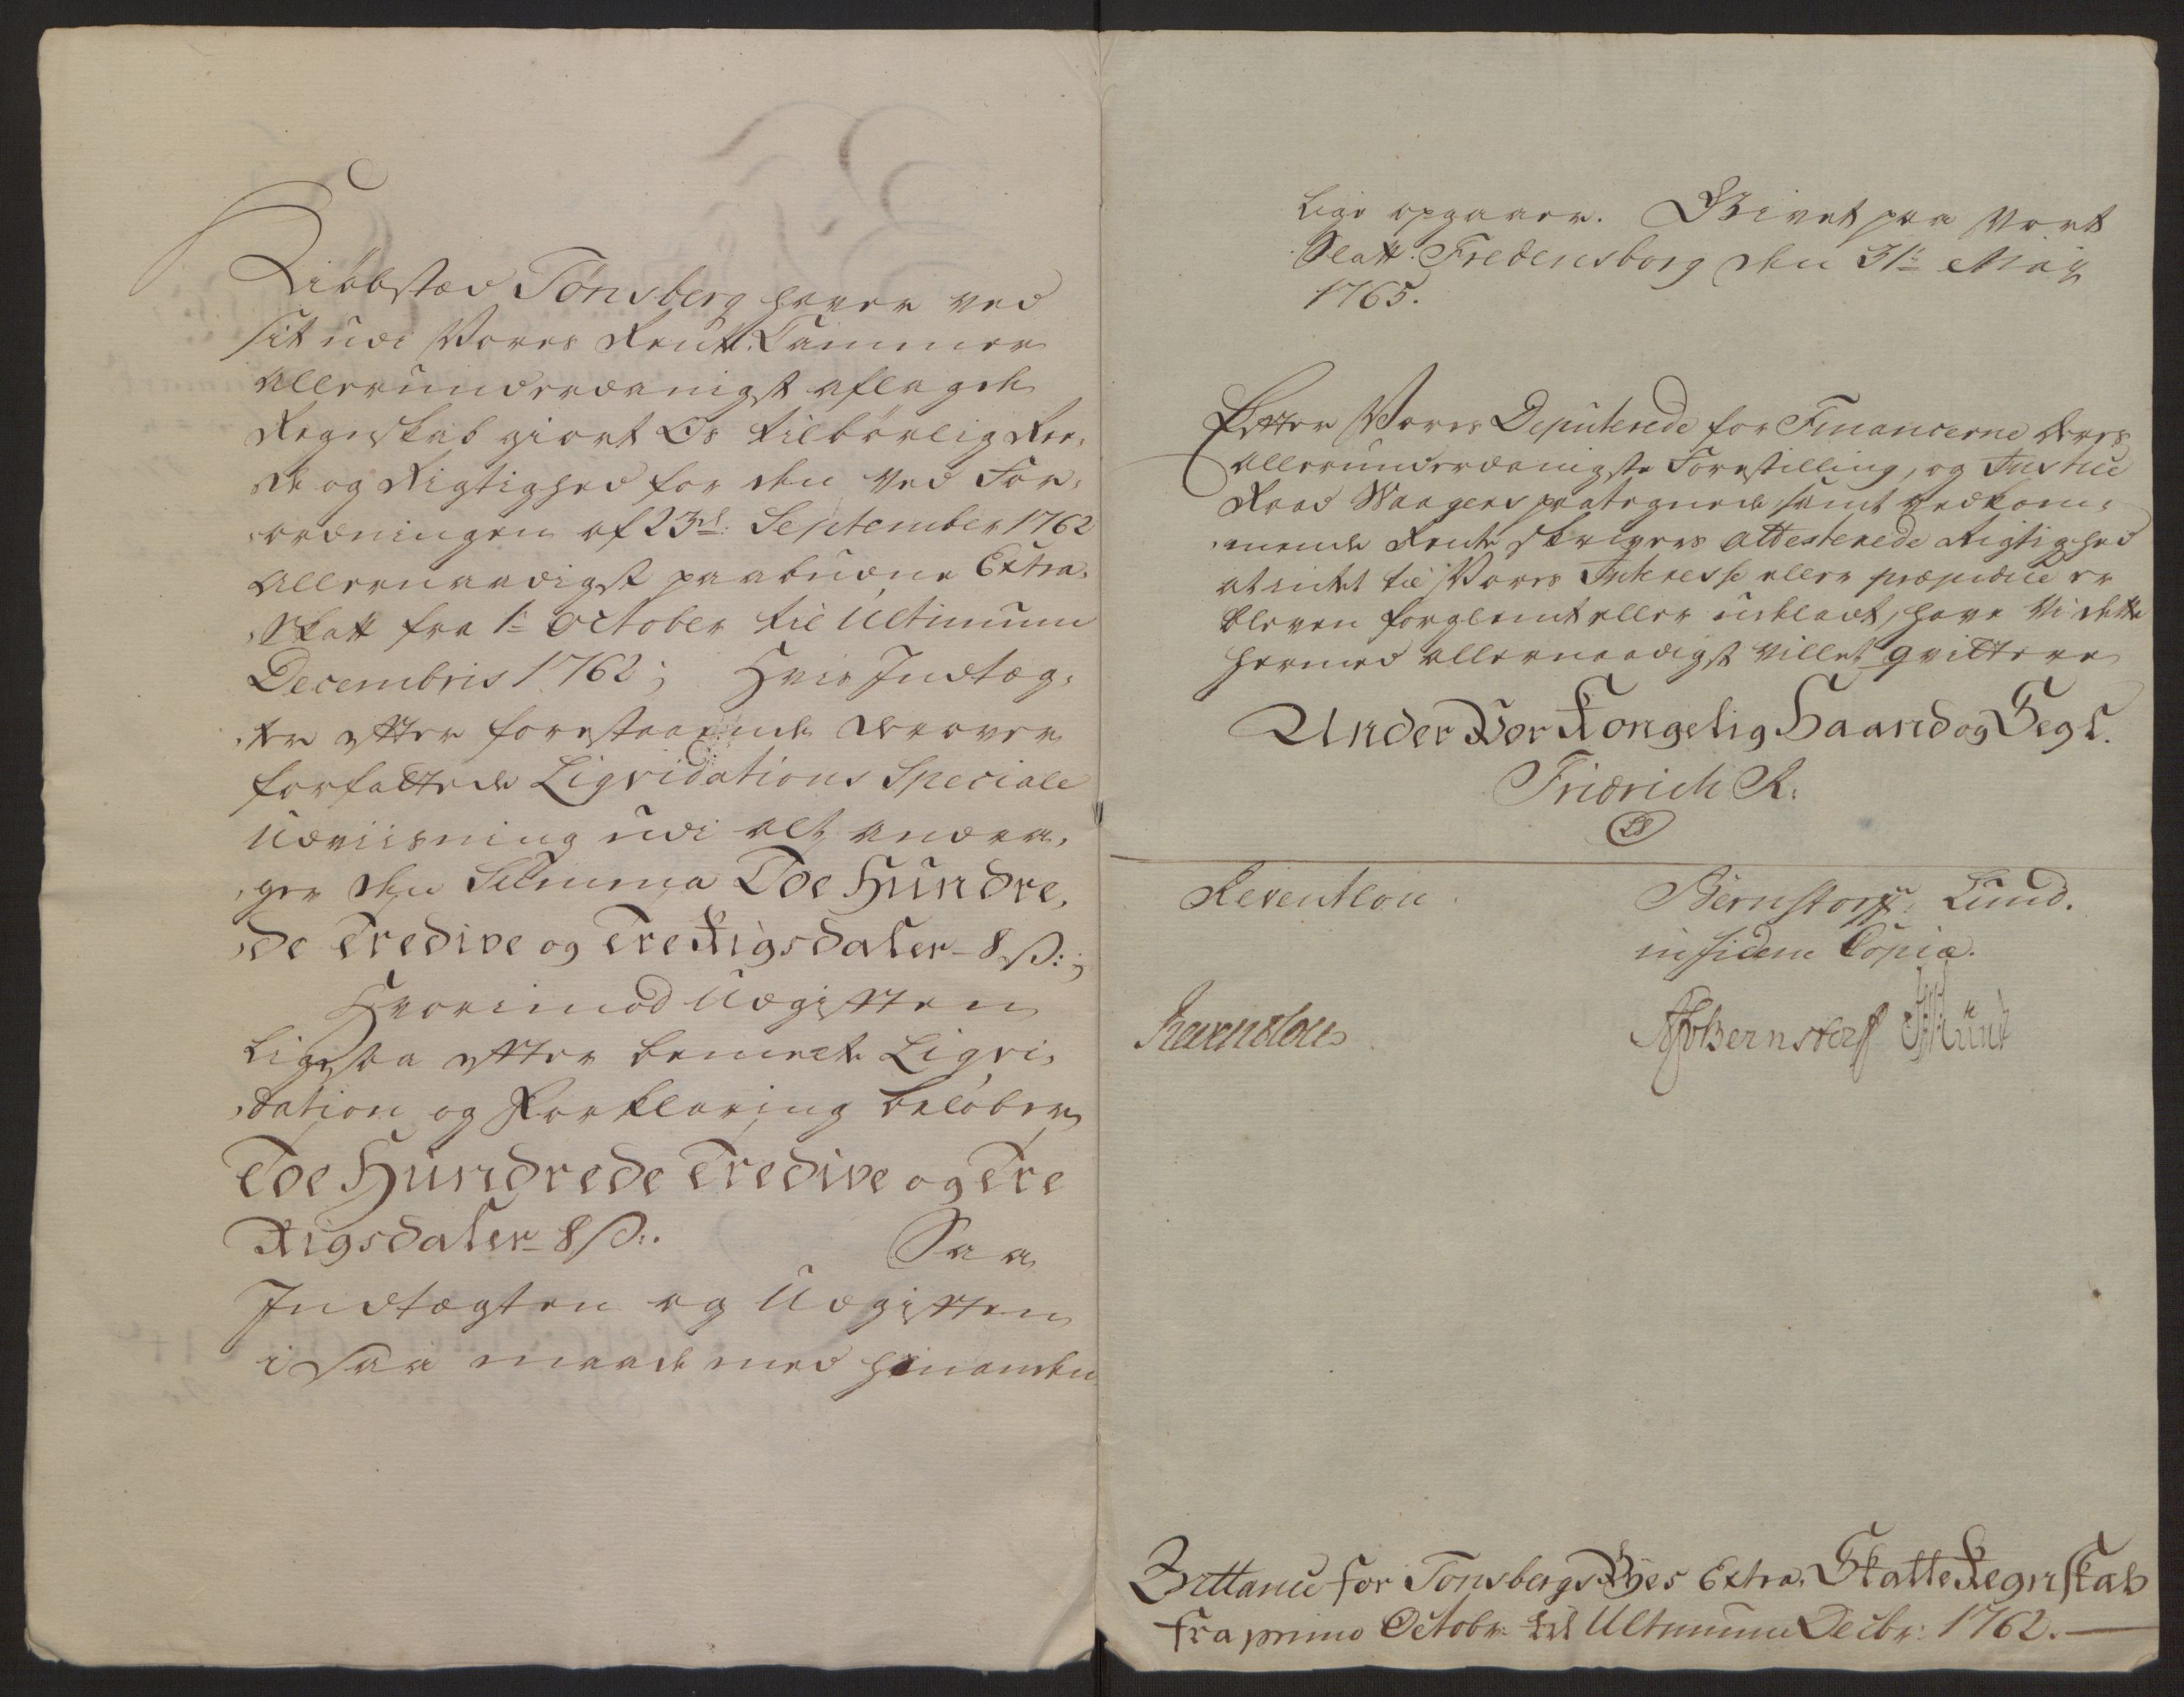 Kiöbstæd Tönsberg haver ved
sit udi Vores Rente Cammer
allerunderdanigst aflagde
Regnskab giort Os tilbörlig Ree,
de og Rigtighed for den ved For,
ordningen af 23d. September 1762
allernaadigst paabudne Extra,
Skatt fra 1te October til Ultimum
Decembris 1762; Hvis Indtæg,
ter efter forestaaende derover
forfattede Liqvidations Speciale
Udviisning udi alt andra,
ger den Summa Toe Hundre,
de Tredive og Tre Rigsdaler - 8 s:;
Hvorimod Udgiften
ligesaa efter bemelte Liqvi,
dation og Forklaring belöber
Toe Hundrede Tredive og Tre
Rigsdaler 8 s:. Saa
Indtægten og Udgiften
i saa maade med hinanden
lige opgaaer. Givet paa Vort
Slott Fredensborg den 31te Maij
1765.
Efter Vores Deputerede for Financerne deres
allerunderdanigste Forestilling, og Justice
Raad Waagers paategnede samt vedkom,
mende Rente skrivers attesterede Rigtighed
at intet til Vores Interesse eller præjudice er
bleven forglemt eller udeladt, have Vi dette
hermed allernaadigst villet qvittere
Under Vor Kongelig Haand og Segl.
Fridrich R.
LS
Reventlou. Bernstorff. Lund.
in fidem Copiæ.
Reventlou Bernstorff Lund
Qvittance for Tonsbergs Byes Extra, Skatte Regnskab
fra primo Octobr: til Ultimum Decbr: 1762.